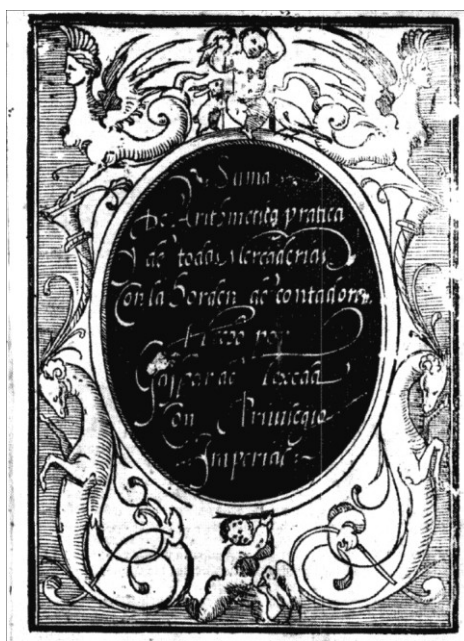 Suma
De Arithmetica pratica
Y de todas Mercaderias
Con la horden de contadores
Hecho por
Gaspar de Texeda
Con Privilegio
Imperial